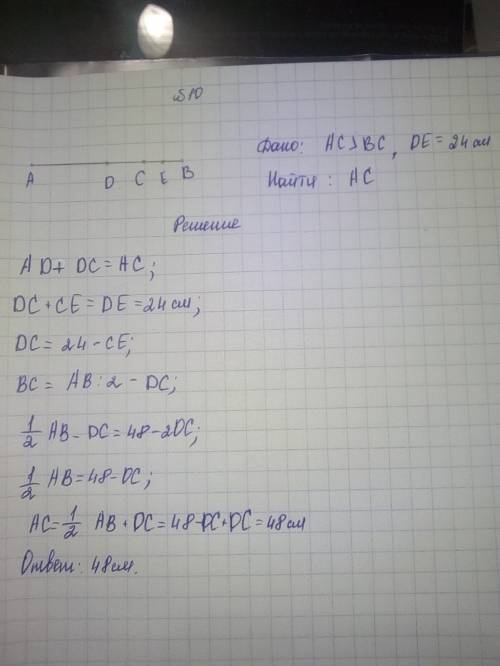 №10
Дано: AC > BC, DE = 24 см
Найти: AC
A D C E B
Решение
AD + DC = AC;
DC + CE = DE = 24 см;
DC = 24 - CE;
BC = AB : 2 - DC;
1/2 AB - DC = 48 - 2DC;
1/2 AB = 48 - DC;
AC = 1/2 AB + DC = 48 - DC + DC = 48 см
Ответ: 48 см.